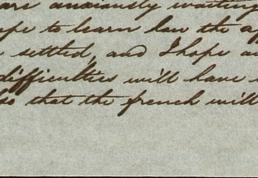 are anxiously waiting
hope to learn how the
settled, and I hope
difficulties will have
so that the french will